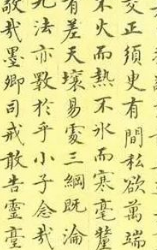 交正須臾有間私欲萬端
不火而熱不冰而寒毫釐
有差天壤易處三綱既淪
九法亦斁於乎小子念哉
敬哉墨卿司戒敢告靈臺